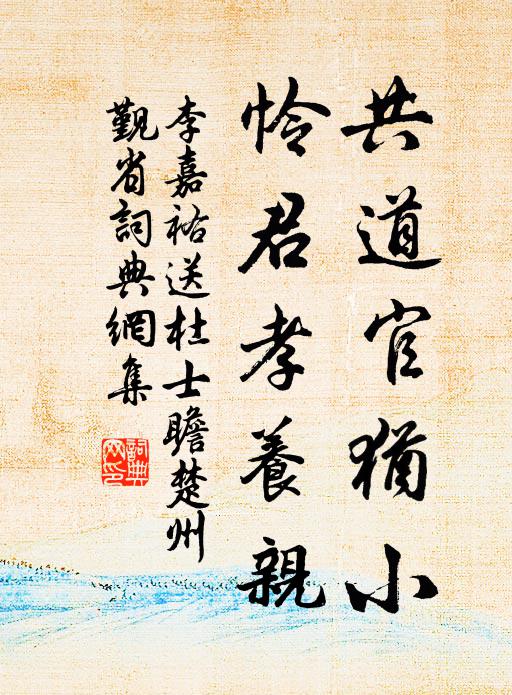 共道官猶小
怜君孝養親
李嘉祐送杜士瞻楚州
觐省詞典網集
詞典
网印